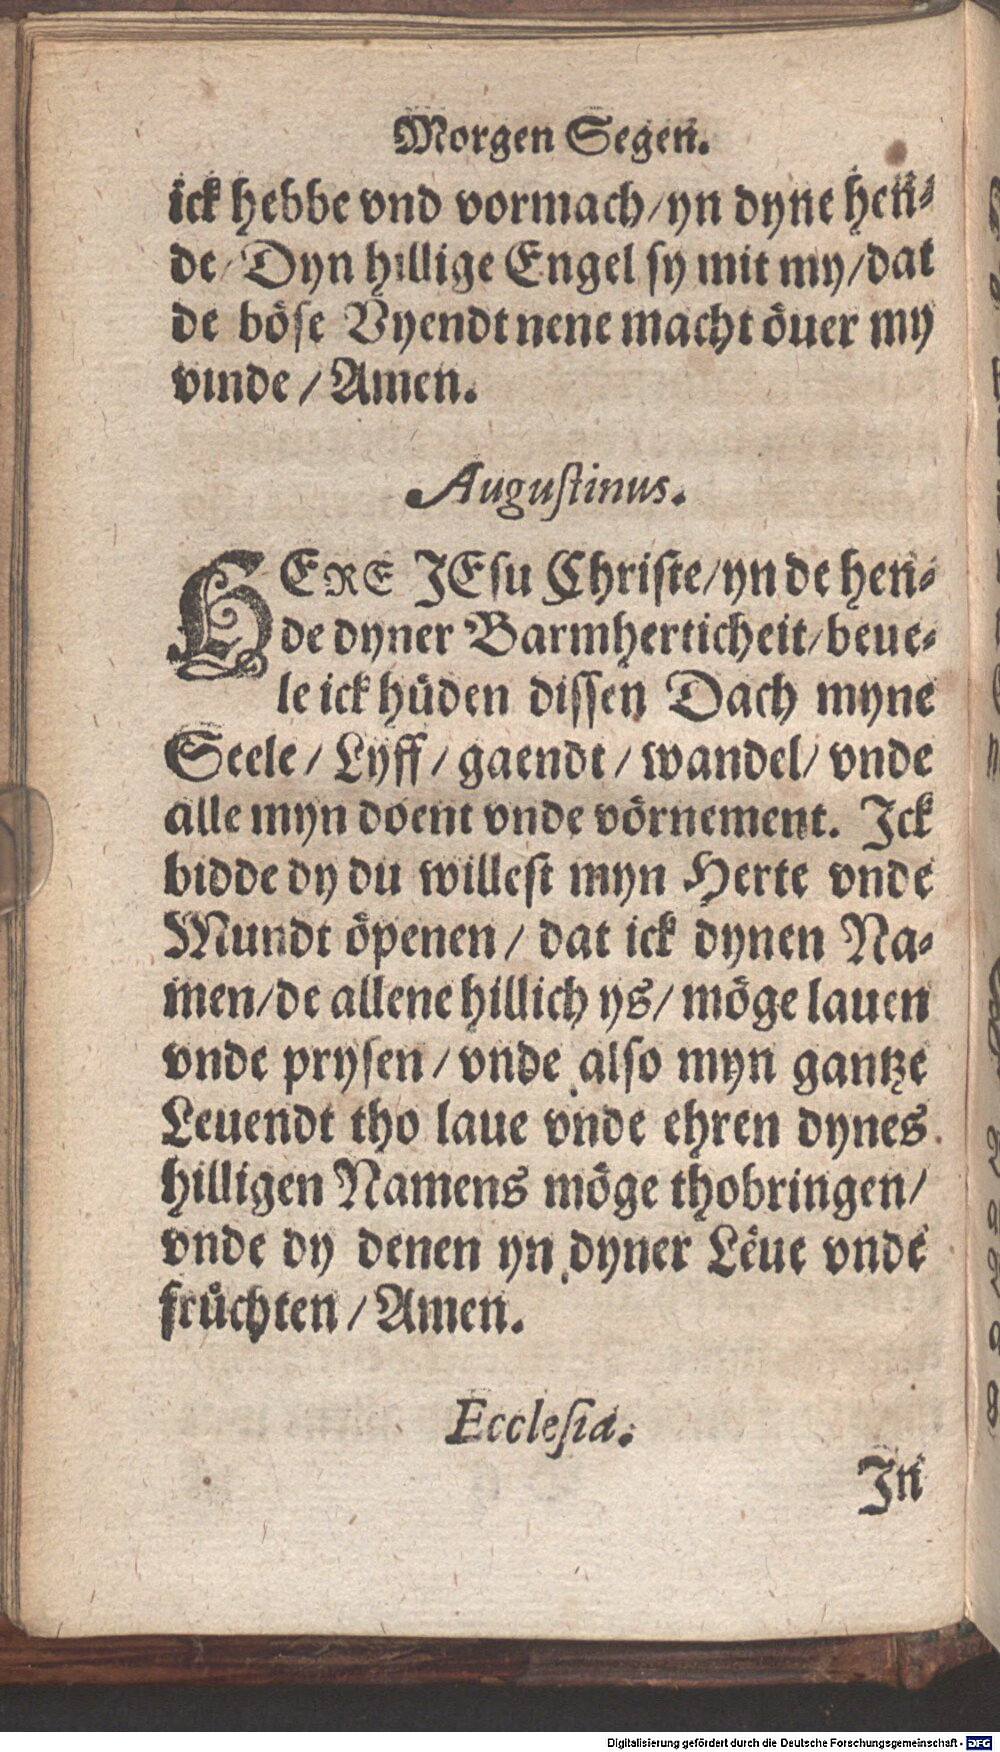 Morgen Segen.
ick hebbe vnd vormach/yn dyne hen⸗
de/Dyn hillige Engel sy mit my/dat
de böse Vyendt nene macht öuer my
vinde/Amen.
Augustinus.
HERE JEsu Christe/yn de hen⸗
de dyner Barmherticheit/beue⸗
le ick hüden dissen Dach myne
Seele/Lyff/gaendt/wandel/vnde
alle myn doent vnde vörnement. Ick
bidde dy du willest myn Herte vnde
Mundt öpenen/dat ick dynen Na⸗
men/de allene hillich ys/möge lauen
vnde prysen/vnde also myn gantze
Leuendt tho laue vnde ehren dynes
hilligen Namens möge thobringen/
vnde dy denen yn dyner Leue vnde
früchten/Amen.
Ecclesia.
In
Digitalisierung gefördert durch die Deutsche Forschungsgemeinschaft - DFG